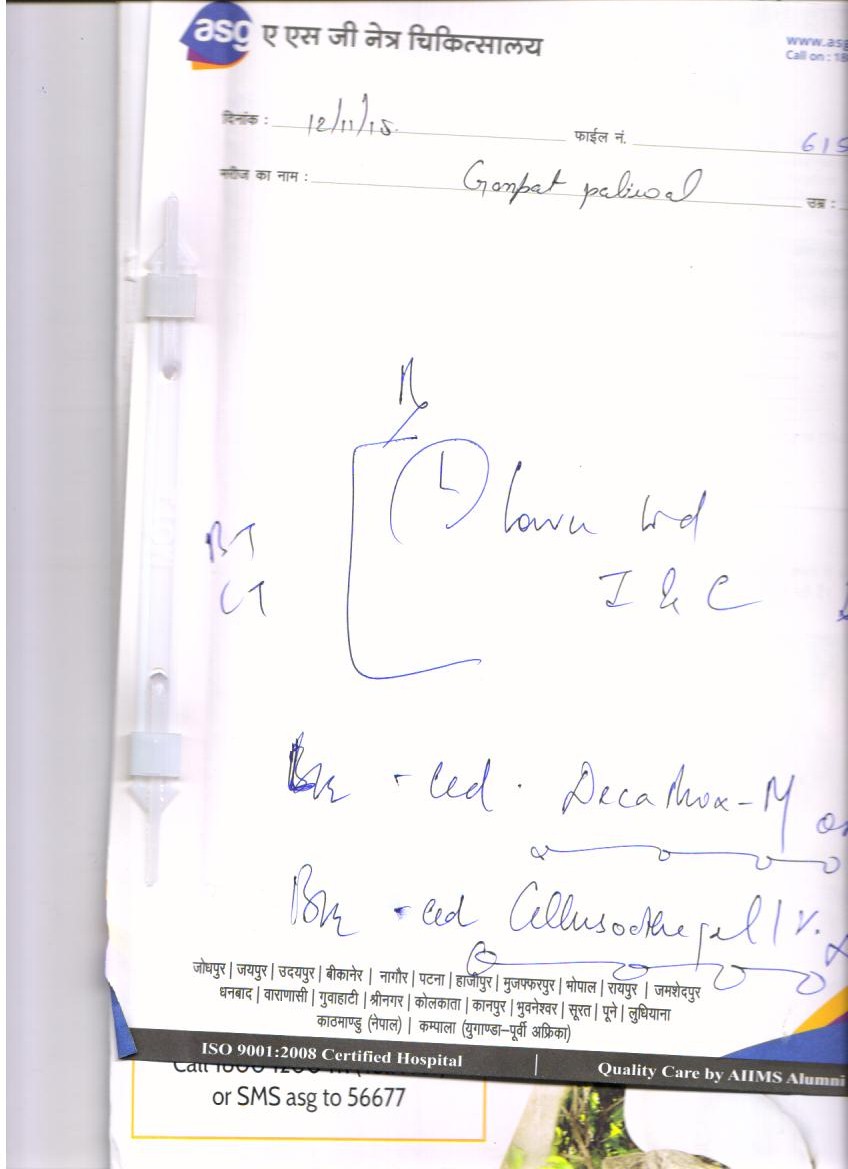 asg ए एस जी नेत्र चिकित्सालय
www.asg
Call on : 18
दिनांक : 12/11/15
फाईल नं. 615
मरीज का नाम : Ganpat paliwal उम्र :
L lower lid
BT
I & C
CT
Decamox-M
Cellusoothe gel 1%
जोधपुर | जयपुर | उदयपुर | बीकानेर | नागौर | पटना | हाजीपुर | मुजफ्फरपुर | भोपाल | रायपुर | जमशेदपुर
धनबाद | वाराणासी | गुवाहाटी | श्रीनगर | कोलकाता | कानपुर | भुवनेश्वर | सूरत | पूने | लुधियाना
काठमाण्डु (नेपाल) | कम्पाला (युगाण्डा-पूर्वी अफ्रिका)
ISO 9001:2008 Certified Hospital | Quality Care by AIIMS Alumni
or SMS asg to 56677